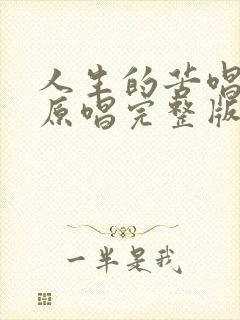 人生的苦唱
原唱完整版
一半是我